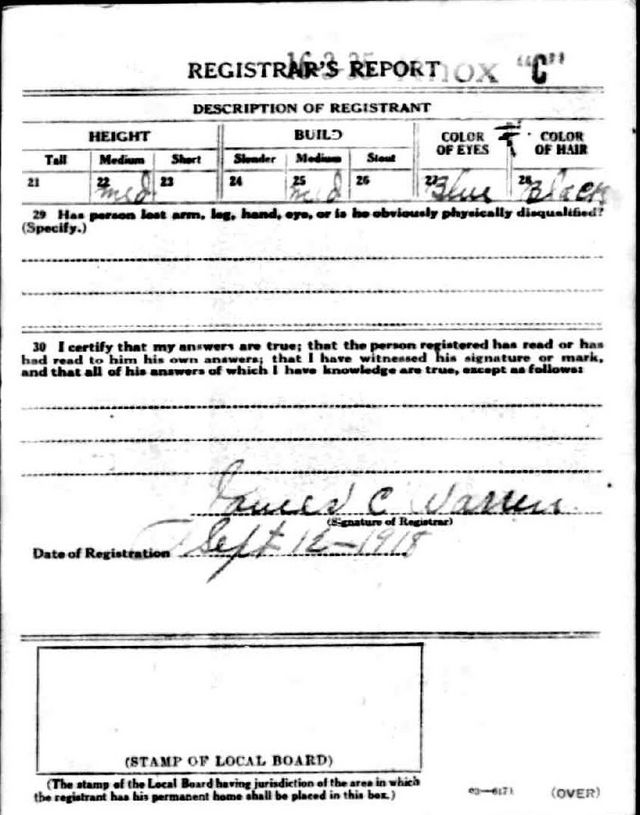 16-2-35 Knox "C"
REGISTRAR'S REPORT
DESCRIPTION OF REGISTRANT
HEIGHT BUILD COLOR OF EYES COLOR OF HAIR
Tall Medium Short Slender Medium Stout
21 22 med 23 24 25 med 26 27 Blue 28 Black
29 Has person lost arm, leg, hand, eye, or is he obviously physically disqualified?
(Specify.)
30 I certify that my answers are true; that the person registered has read or has
had read to him his own answers; that I have witnessed his signature or mark,
and that all of his answers of which I have knowledge are true, except as follows:
James C Warren
(Signature of Registrar)
Date of Registration Sept 12-1918
(STAMP OF LOCAL BOARD)
(The stamp of the Local Board having jurisdiction of the area in which
the registrant has his permanent home shall be placed in this box.)
03—6171 (OVER)